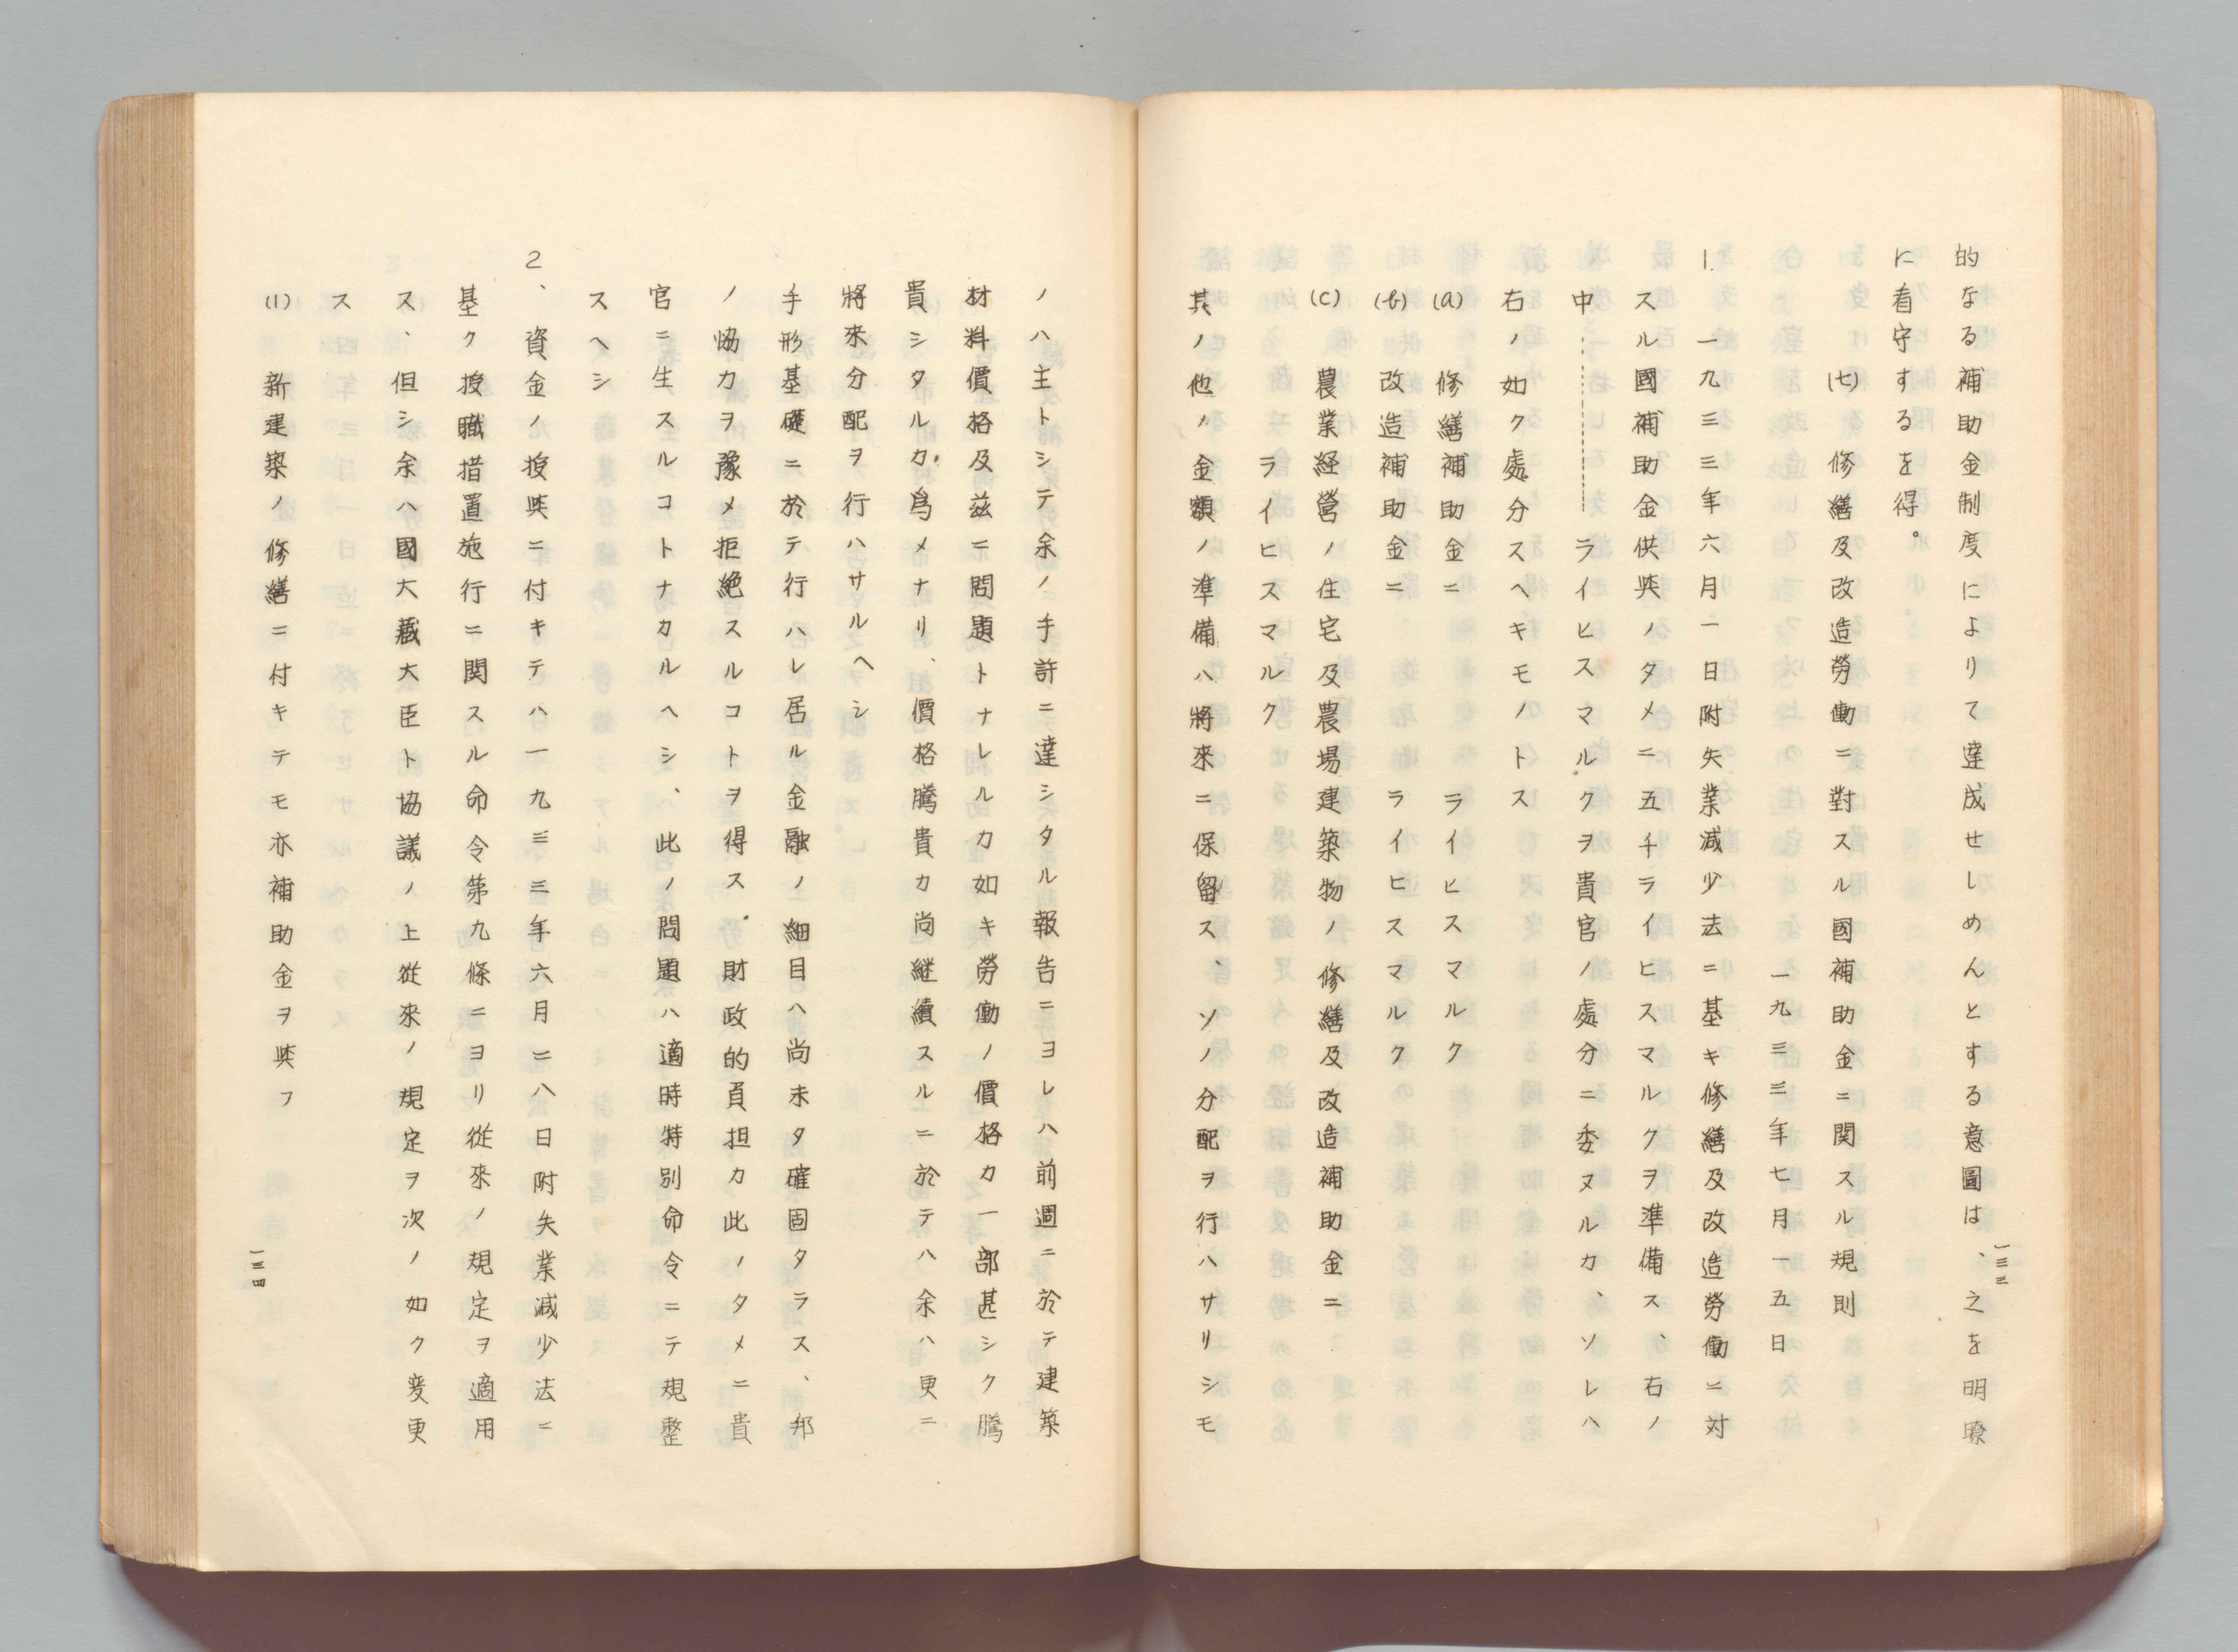 的なる補助金制度によりて達成せしめんとする意圖は、之を明瞭
に看守するを得。
(七) 修繕及改造勞働ニ對スル國補助金ニ関スル規則
一九三三年七月一五日
1. 一九三三年六月一日附失業減少法ニ基キ修繕及改造勞働ニ対
スル國補助金供与ノタメニ五千ライヒスマルクヲ準備ス、右ノ
中‥‥‥‥ライヒスマルクヲ貴官ノ處分ニ委ヌルカ、ソレハ
右ノ如ク處分スヘキモノトス
(a) 修繕補助金ニ ライヒスマルク
(b) 改造補助金ニ ライヒスマルク
(c) 農業経營ノ住宅及農場建築物ノ修繕及改造補助金ニ
ライヒスマルク
其ノ他ノ金額ノ準備ハ將來ニ保留ス、ソノ分配ヲ行ハサリシモ
一三三
ノハ主トシテ余ノ手許ニ達シタル報告ニヨレハ前週ニ於テ建築
材料價格及茲ニ問題トナレルカ如キ勞働ノ價格カ一部甚シク騰
貴シタルカ為メナリ、價格騰貴カ尚継續スルニ於テハ余ハ更ニ
將來分配ヲ行ハサルヘシ
手形基礎ニ於テ行ハレ居ル金融ノ細目ハ尚未タ確固タラス、邦
ノ協力ヲ豫メ拒絶スルコトヲ得ス。財政的負担カ此ノタメニ貴
官ニ生スルコトナカルヘシ、此ノ問題ハ適時特別命令ニテ規整
スヘシ
2、資金ノ授与ニ付キテハ一九三三年六月二八日附失業減少法ニ
基ク授職措置施行ニ関スル命令第九條ニヨリ從來ノ規定ヲ適用
ス、但シ余ハ國大蔵大臣ト協議ノ上從來ノ規定ヲ次ノ如ク変更
ス
(1) 新建築ノ修繕ニ付キテモ亦補助金ヲ与フ
一三四